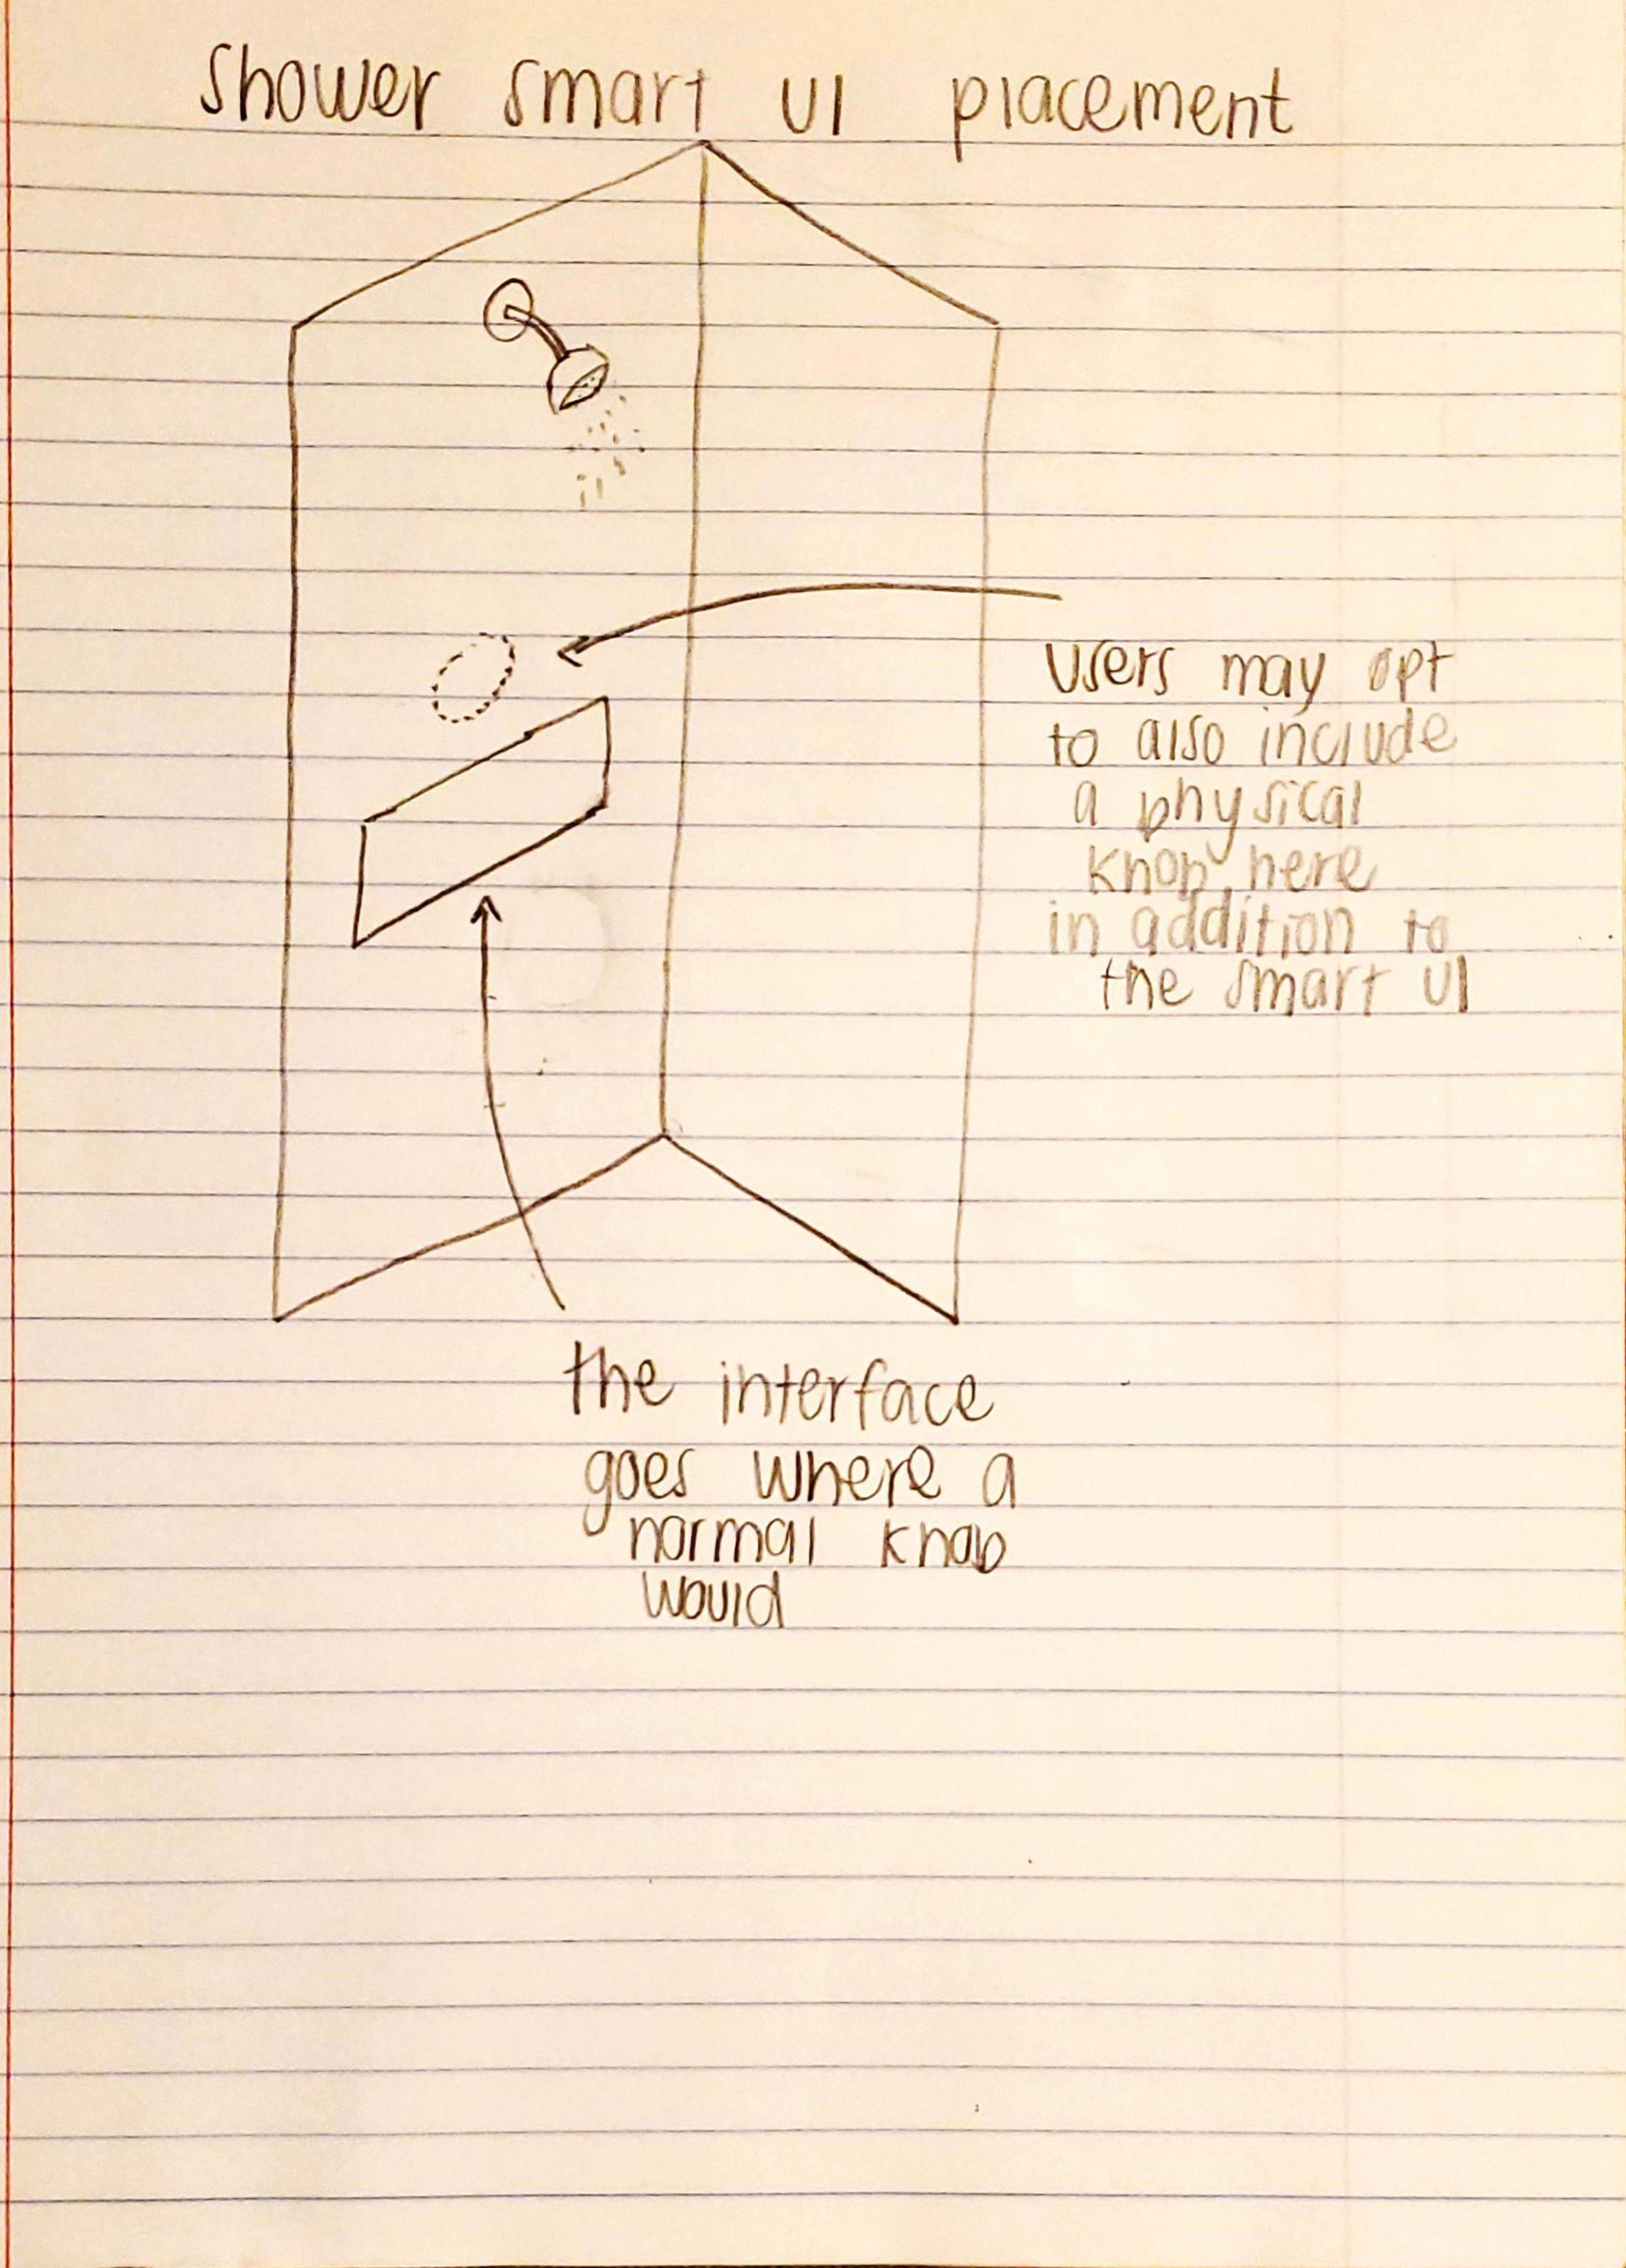 Shower smart UI placement
users may opt
to also include
a physical
knob here
in addition to
the smart UI
the interface
goes where a
normal knob
would